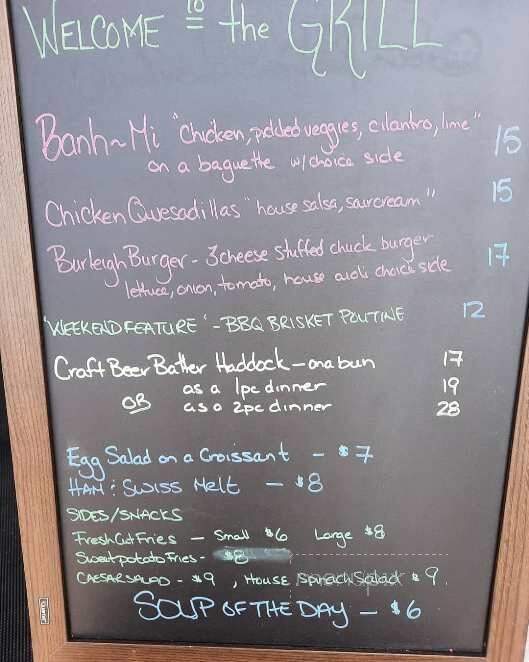 WELCOME to the GRILL
Banh~Mi "Chicken, pickled veggies, cilantro, lime" 15
on a baguette w/choice side
Chicken Quesadillas "house salsa, sourcream" 15
Burleigh Burger - 3 cheese stuffed chuck burger 17
lettuce, onion, tomato, house choice side
'WEEKEND FEATURE' - BBQ BRISKET POUTINE 12
Craft Beer Batter Haddock - on a bun 17
as a 1pc dinner 19
OR as a 2pc dinner 28
Egg Salad on a Croissant - $7
HAM & SWISS Melt - $8
SIDES/SNACKS
Fresh Cut Fries - Small $6 Large $8
Sweet potato Fries - $8
CAESAR SALAD - $9, HOUSE Salad $9
SOUP OF THE DAY - $6